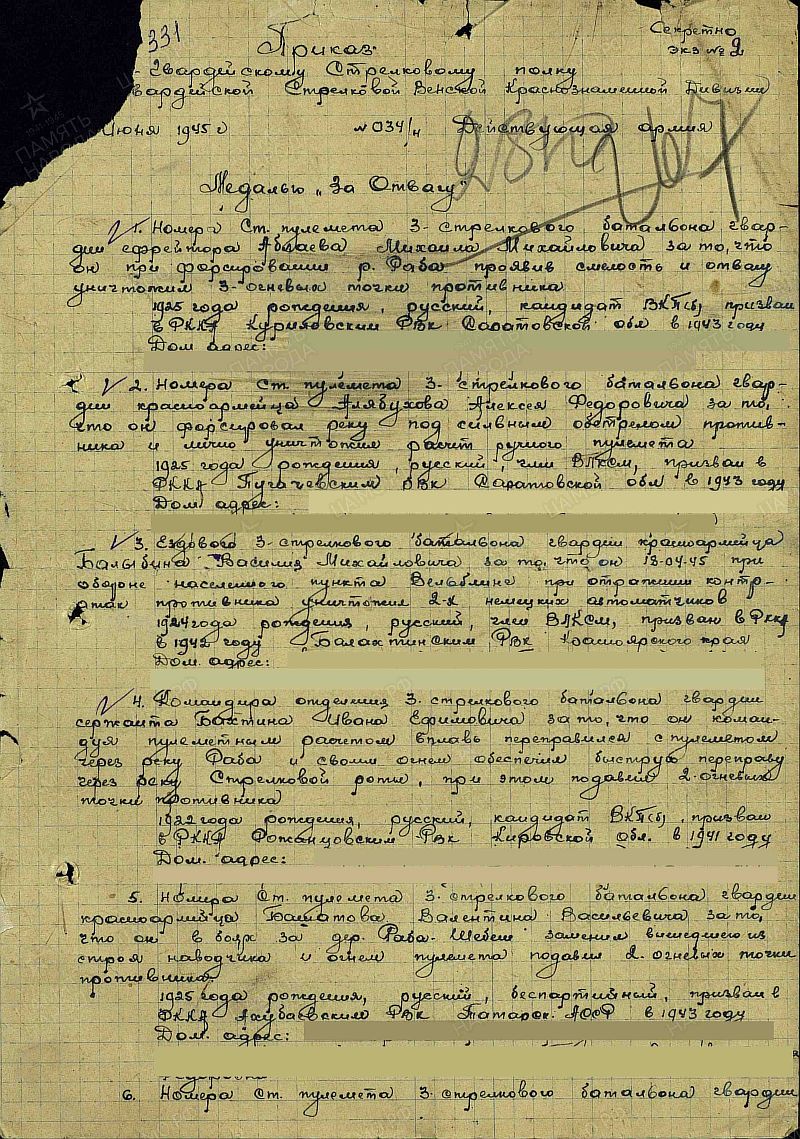 331
Секретно
экз № 2
Приказ
Гвардейскому Стрелковому полку
вардейской Стрелковой Венской Краснознаменной Дивизии
Июня 1945 г № 034/н Действующая армия
Медалью „За Отвагу"
1. Номера Ст. пулемета 3-стрелкового батальона гвар-
дии ефрейтора Аблаева Михаила Михайловича за то, что
он при форсировании р. Раба проявив смелость и отвагу
уничтожил 3-огневых точки противника
1925 года рождения, русский, кандидат ВКП(б) призван
в РККА Куриловским РВК Саратовской обл в 1943 году
Дом адрес:
2. Номера Ст. пулемета 3-стрелкового батальона гвар-
дии красноармейца Алябухова Алексея Федоровича за то,
что он форсировал реку под сильным обстрелом против-
ника и лично уничтожил расчет ручного пулемета
1925 года рождения, русский, член ВЛКСМ, призван в
РККА Пугачевским РВК Саратовской обл в 1943 году
Дом адрес:
3. Ездового 3-стрелкового батальона гвардии красноармейца
Балыбина Василия Михайловича за то, что он 13-04-45 при
обороне населенного пункта Вельблинг при отражении контр-
атак противника уничтожил 2-х немецких автоматчиков
1924 года рождения, русский, член ВЛКСМ, призван в РККА
в 1942 году Балахтинским РВК Красноярского края
Дом. адрес:
4. Командира отделения 3-стрелкового батальона гвардии
сержанта Бахтина Ивана Ефимовича за то, что он коман-
дуя пулеметным расчетом вплавь переправился с пулеметом
через реку Раба и своим огнем обеспечил быструю переправу
через реку Стрелковой роты, при этом подавил 2-огневых
точки противника
1922 года рождения, русский, кандидат ВКП(б), призван
в РККА Рожанцовским РВК Кировской обл. в 1941 году
Дом. адрес:
5. Номера Ст. пулемета 3-стрелкового батальона гвардии
красноармейца Башатова Валентина Васильевича за то,
что он в боях за дер. Раба-Шебеш заменил вышедшего из
строя наводчика и огнем пулемета подавил 2-огневых точки
противника.
1925 года рождения, русский, беспартийный, призван в
РККА Акубаевским РВК Татарск. АССР в 1943 году
Дом. адрес:
6. Номера Ст. пулемета 3-стрелкового батальона гвардии